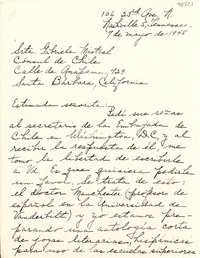 106 23rd Ave. N.
Nashville 5, Tennessee
7 de mayo de 1948
Srta. Gabriela Mistral
Consul de Chile
Calle de Anapamu, 729
Santa Bárbara, California
Estimada señorita:
Pedí sus señas
al secretario de la Embajada de
Chile en Washington, D.C. y al
recibir la respuesta de él, me
tomo la libertad de escribirle
a Ud. Es que quisiera pedirle
un favor. Se trata de esto:
el doctor Manchester (profesor de
español en la Universidad de
Vanderbilt) y yo estamos pre-
parando una antología corta
de joyas literarias hispánicas
para el uso de las escuelas superiores